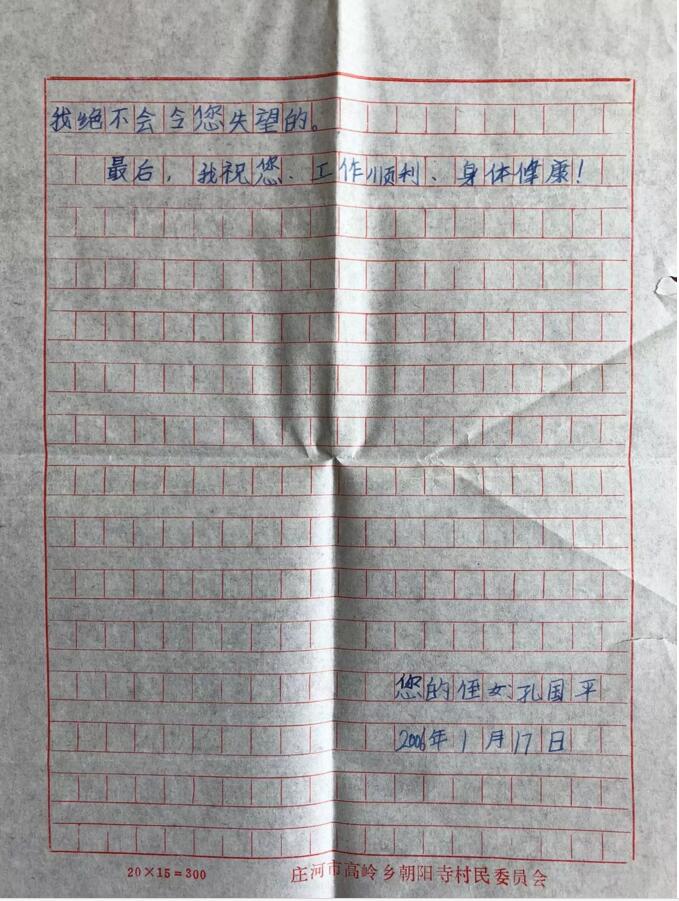 我绝不会令您失望的。
最后，我祝您、工作顺利、身体健康！
您的侄女：孔国平
2006年1月17日
20×15=300
庄河市高岭乡朝阳寺村民委员会